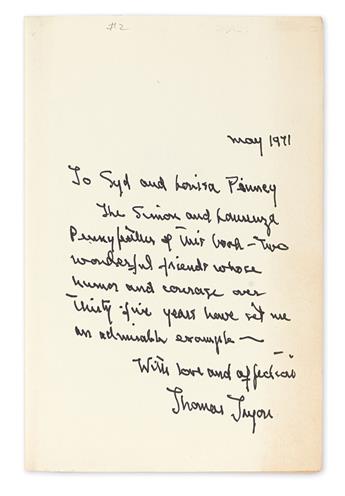 #2
May 1971
To Syd and Louisa Pinney
The Simon and Laurenza
Pennyfeather of this book - two
wonderful friends whose
humor and courage over
thirty-five years have set me
an admirable example ~
With love and affection
Thomas Tryon